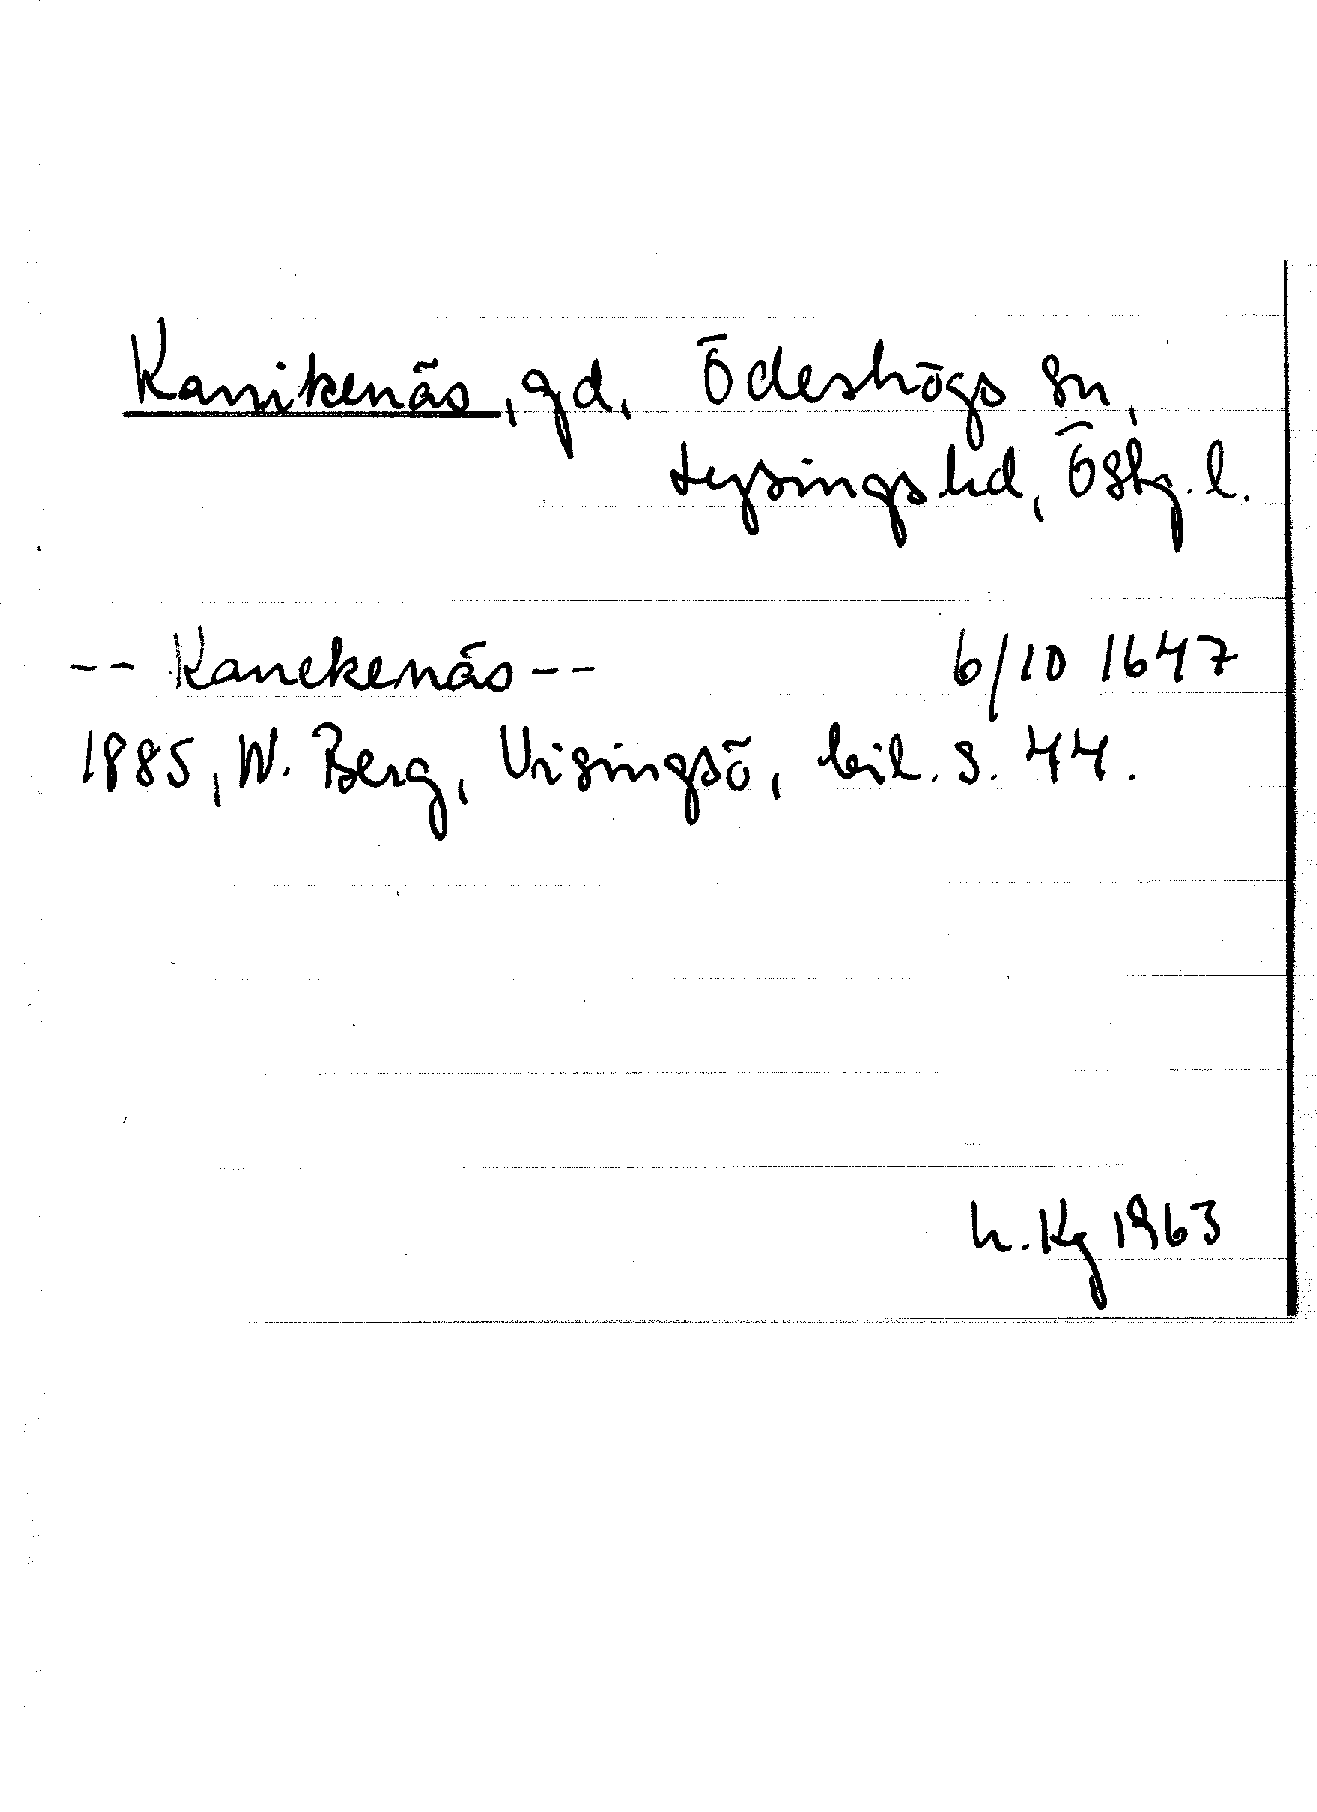 Kanikenäs, gd, Ödeshögs sn,
Lysings hd, Östg. l.
-- Kanekenäs -- 6/10 1647
1885, W. Berg, Visingsö, bil. s. 44.
h. Kg 1963